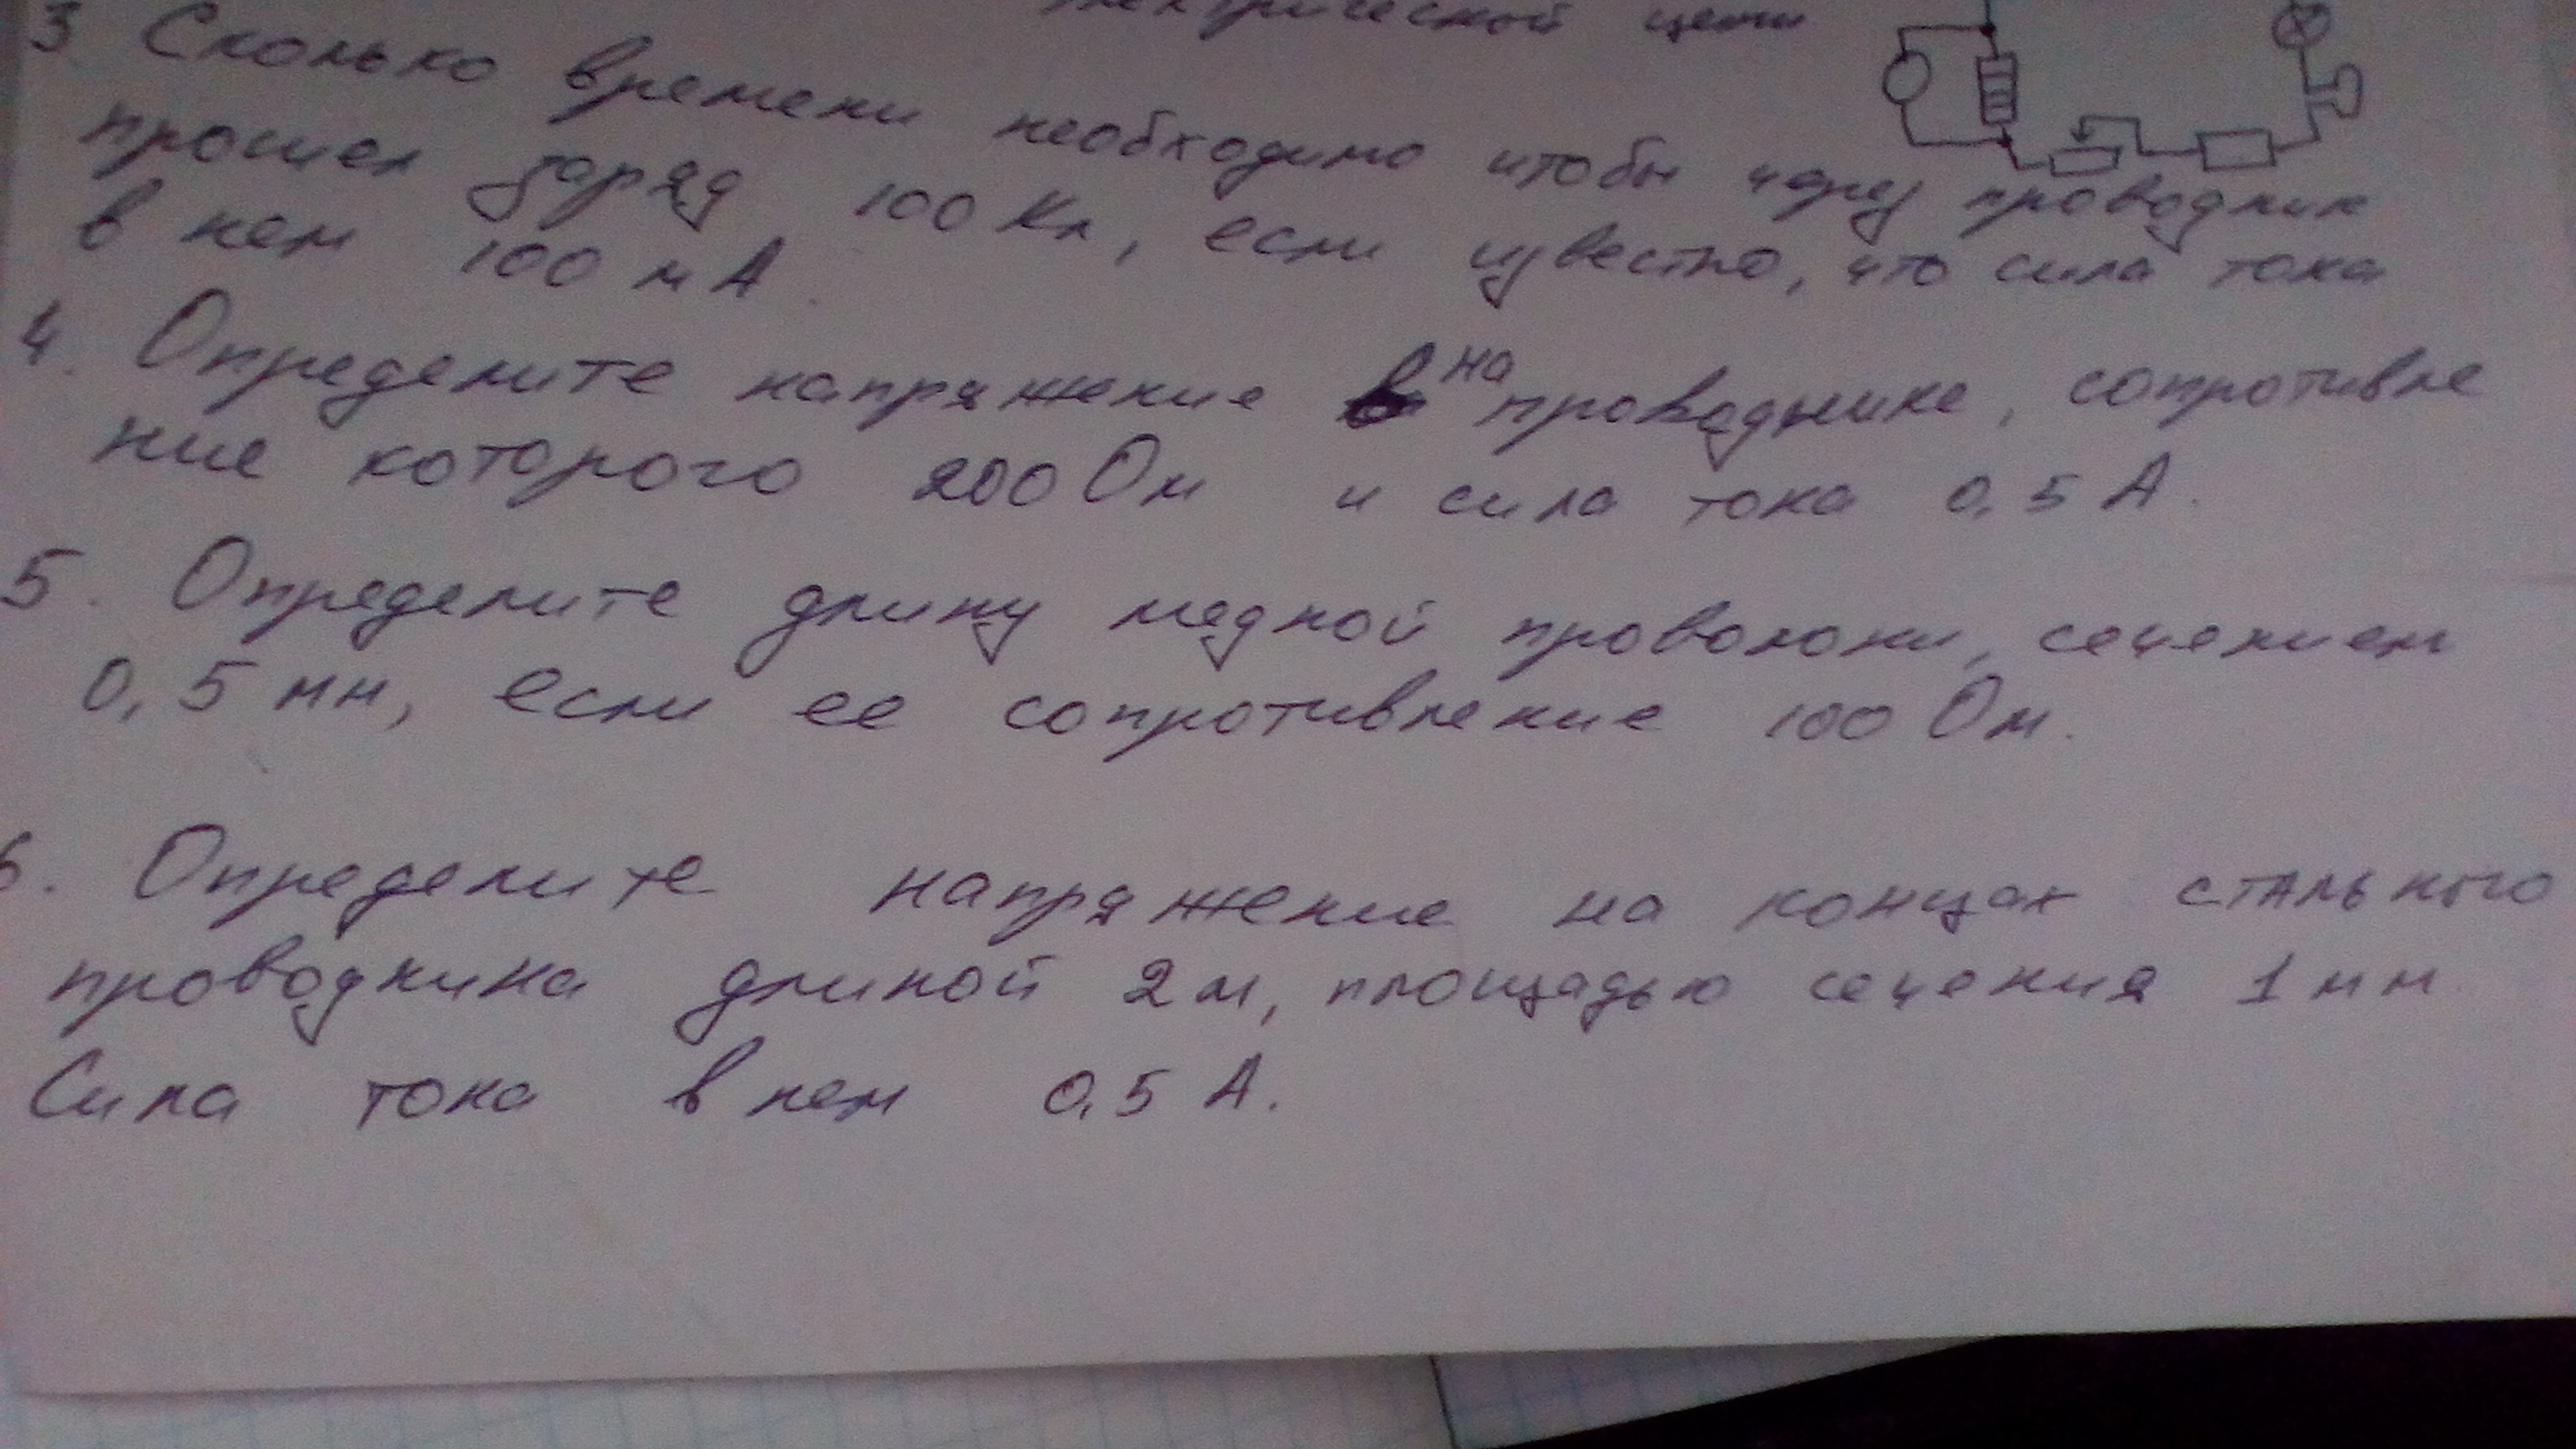 электрической цепи
3 Сколько времени необходимо чтобы через проводник
прошел заряд 100 Кл, если известно, что сила тока
в нем 100 мА.
4. Определите напряжение на проводнике, сопротивле
ние которого 200 Ом и сила тока 0,5 А.
5. Определите длину медной проволоки, сечением
0,5 мм, если ее сопротивление 100 Ом.
6. Определите напряжение на концах стального
проводника длиной 2 м, площадью сечения 1 мм.
Сила тока в нем 0,5 А.